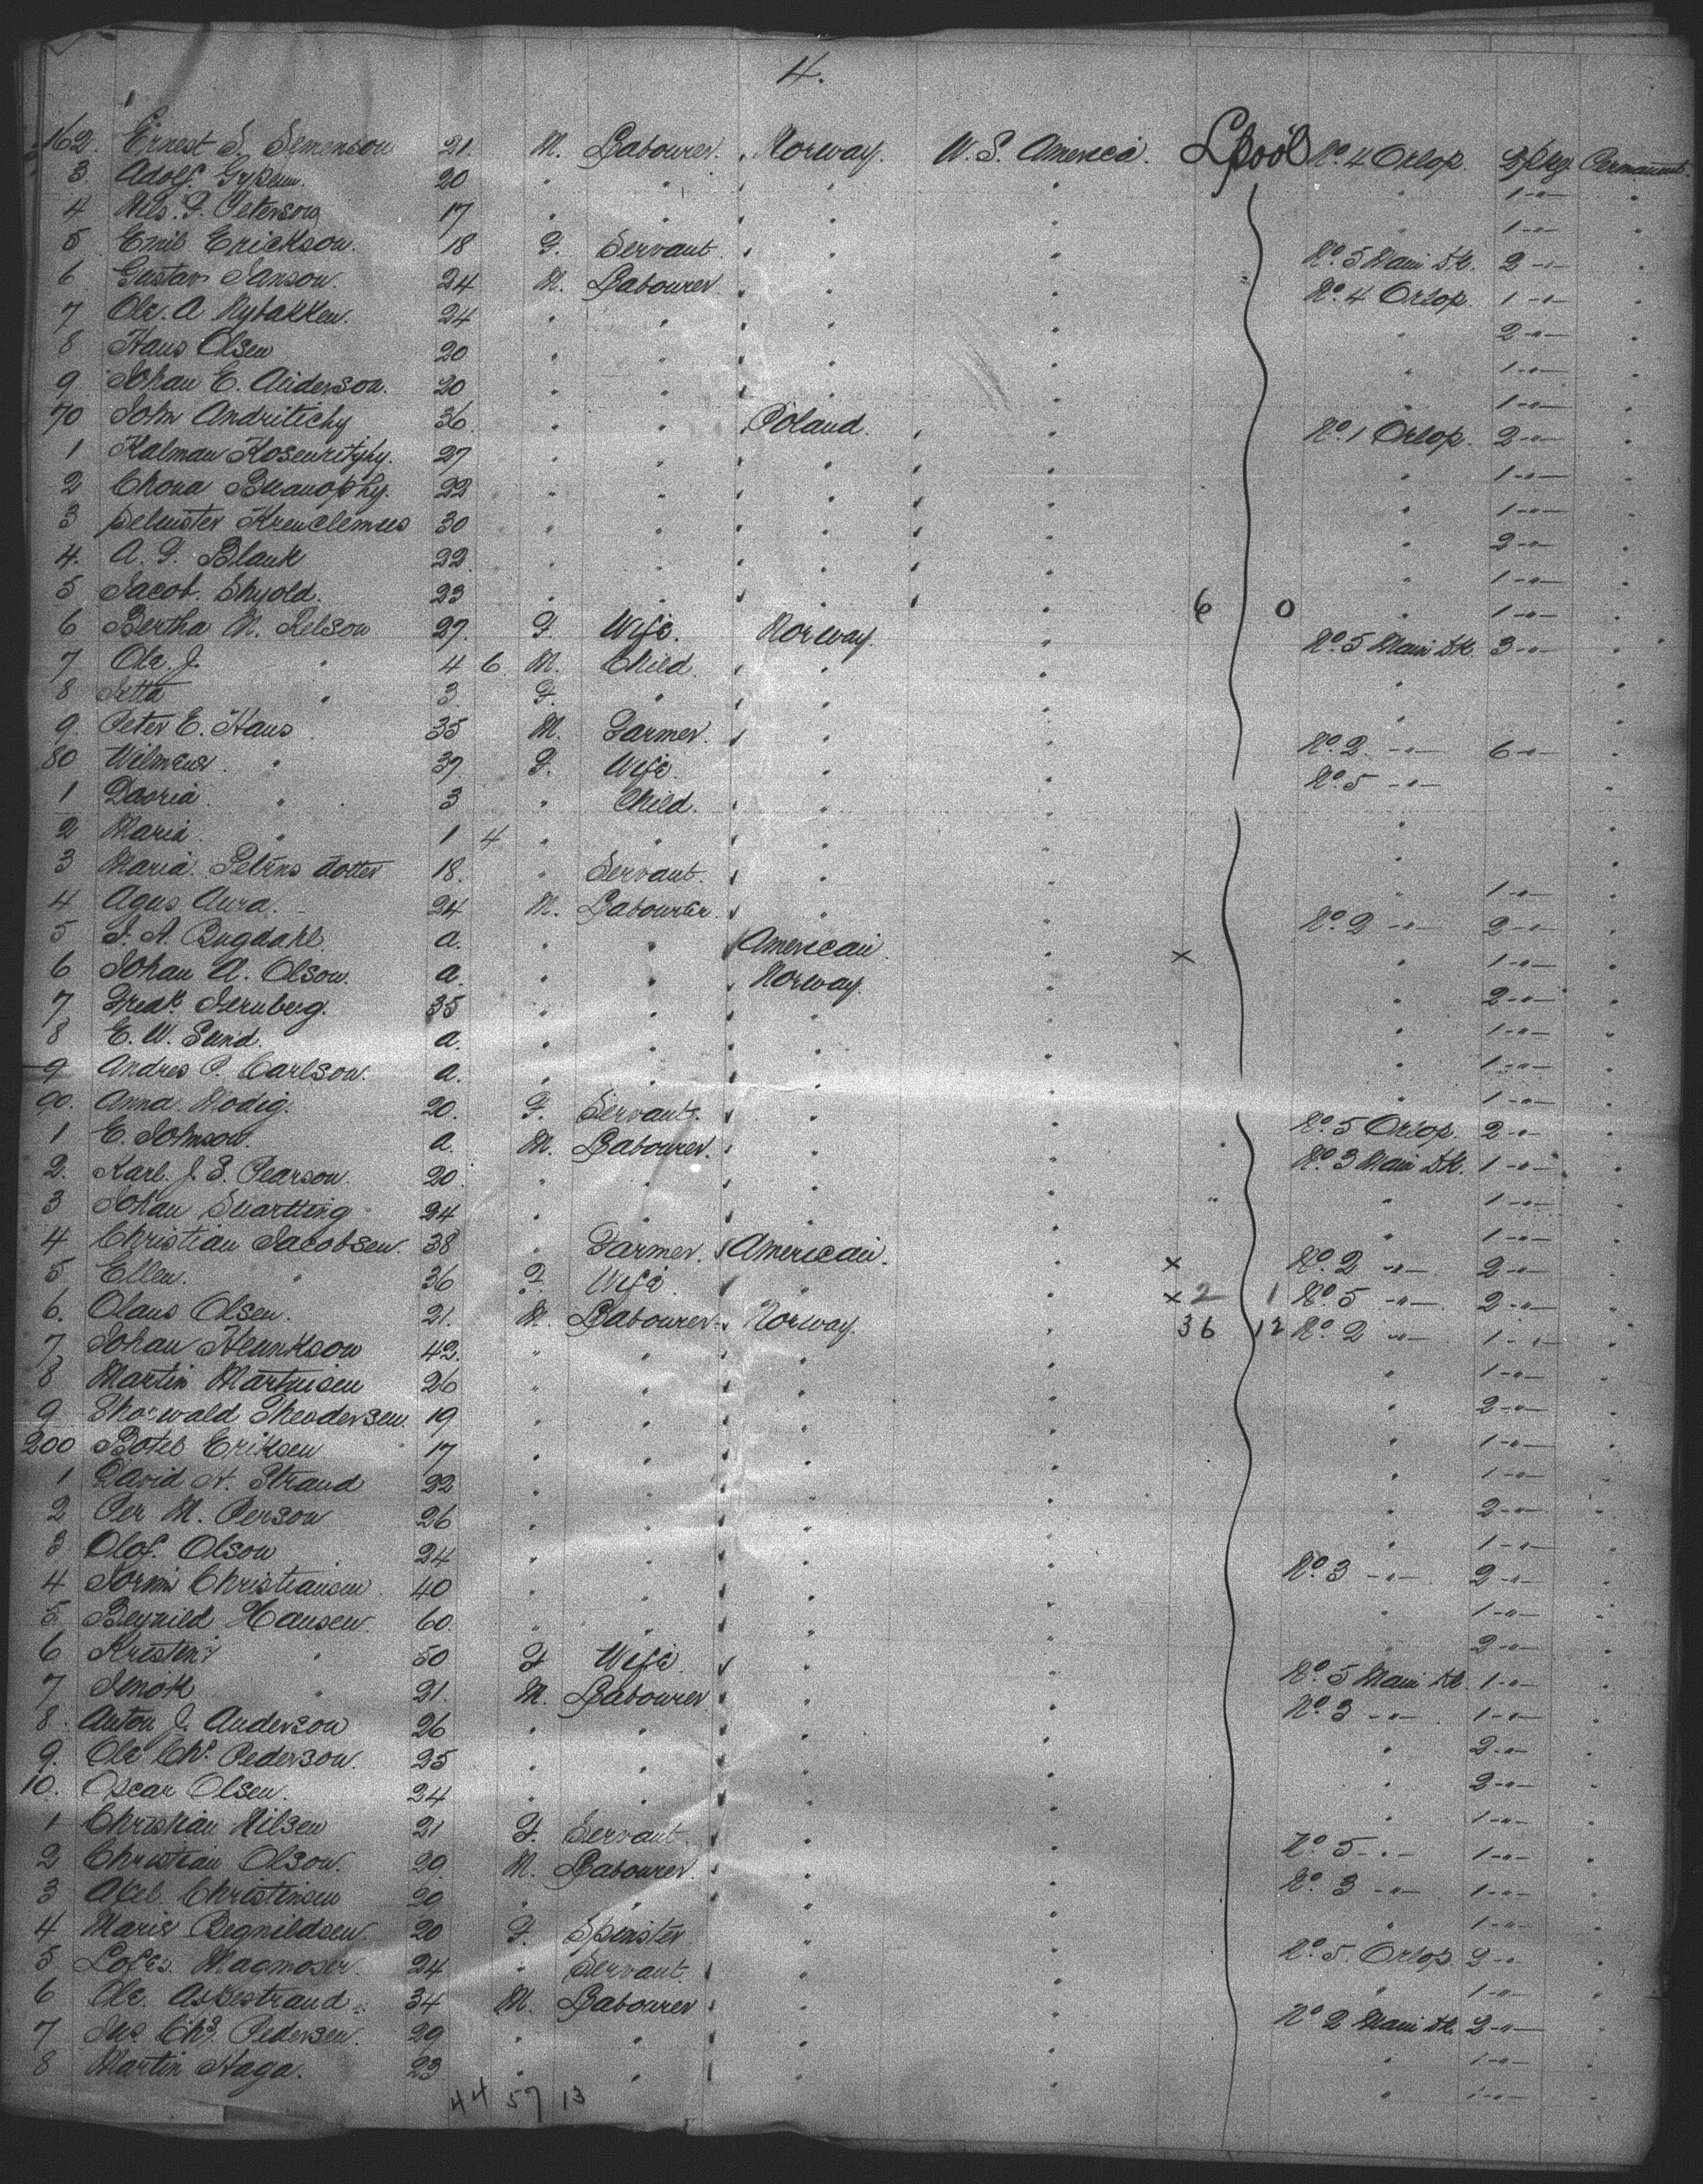 4.
162. Ernest S. Semenson 21. M. Labourer. Norway. U.S. America. Lpool No. 4 Orlop. 2 pkg. Permanent.
3. Adolf 20 " " " " " 1 -"- "
4 Nils. F. Peterson 17 " " " " " 1 -"- "
5 Emil Erickson. 18 F. Servant. " " No. 5 Main Dk. 2 -"- "
6 Gustav Janson. 24 M. Labourer. " " No. 4 Orlop. 1 -"- "
7 Ole. A Nybakken. 24 " " " " " 2 -"- "
8 Hans Olsen 20 " " " " " 1 -"- "
9 Johan E. Anderson. 20 " " " " " 1 -"- "
70 John Andritichy 36 " " Poland. " No. 1 Orlop. 2 -"- "
1 Kalman 27 " " " " " 1 -"- "
2 Chona 22 " " " " " 1 -"- "
3 30 " " " " " 2 -"- "
4. A. F. Blank 22 " " " " " 1 -"- "
5 Jacob. Shyold. 23 " " " " 6 0 " 1 -"- "
6 Bertha M. Nelson 27. F. Wife. Norway. " No. 5 Main Dk. 3 -"- "
7 Ole. J. " 4 6 M. Child. " " " "
8 Jetta " 3 F. " " " " "
9. Peter E. Haus 35 M. Farmer. " " No. 2 -"- 6 -"-
80 " 37 F. Wife. " No. 5 -"-
1 " 3 " Child. " " "
2 Maria. " 1 4 " " " "
3 Maria. dotter 18. " Servant. " " " 1 -"- "
4 Agus Aura. 24 M. Labourer. " " No. 2 -"- 2 -"- "
5 J. A. Bugdahl a. " " American. " x " 1 -"- "
6 Johan A. Olson. a. " " Norway. " " 2 -"- "
7 Fredk. Sternberg. 35 " " " " " 1 -"- "
8 E. W. Sund. a. " " " " " 1 -"- "
9 Andres P. Carlson. a. " " " " " 1 -"- "
90. Anna Modig. 20. F. Servant. " " No. 5 Orlop. 2 -"- "
1 E. Johnson. a. M. Labourer. " " No. 3 Main Dk. 1 -"- "
2. Karl. J. S. Pearson. 20. " " " " " 1 -"- "
3 Johan Svartling 24 " " " " " 1 -"- "
4 Christian Jacobsen. 38 " Farmer. American. " x No. 2 -"- 2 -"- "
5 Ellen. " 36 F. Wife. " " x 2 1 No. 5 -"- 2 -"- "
6. Olaus Olsen. 21. M. Labourer. Norway. " 36 12 No. 2 -"- 1 -"- "
7 Johan Henrikson 42. " " " " " 1 -"- "
8 Martin Martinsen 26 " " " " " 2 -"- "
9 Thorwald Theodersen. 19 " " " " " 1 -"- "
200 Botel Eriksen 17 " " " " " 1 -"- "
1 David A. Strand 22 " " " " " 2 -"- "
2 Per M. Person 26 " " " " " 1 -"- "
3 Olof. Olson 24 " " " " No. 3 -"- 2 -"- "
4 Christiansen. 40 " " " " " 1 -"- "
5. Hansen. 60. " " " " " 2 -"- "
6 Kristen " 50 F Wife. " " No. 5 Main Dk. 1 -"- "
7 " 21. M. Labourer " " No. 3 -"- 1 -"- "
8. Anton J. Anderson 26 " " " " " 2 -"- "
9. Ole Chr. Pederson. 25 " " " " " 2 -"- "
10. Oscar Olsen. 24 " " " " " 1 -"- "
1 Christian Nilsen 21 F. Servant. " " No. 5 -"- 1 -"- "
2 Christian Olson. 29 M. Labourer. " " No. 3 -"- 1 -"- "
3 Axel. Christinsen 20 " " " " " 1 -"- "
4 Marie Regnildsen. 20 F. Spinster " " No. 5. Orlop. 2 -"- "
5 Magmoser. 24 " Servant. " " " 1 -"- "
6 Ole. Askestrand. 34 M. Labourer " " No. 2 Main Dk. 2 -"- "
7 Chs. Pedersen. 29 " " " " " 1 -"- "
8 Martin Haga. 23 " " " " " 1 -"- "
44 57 13